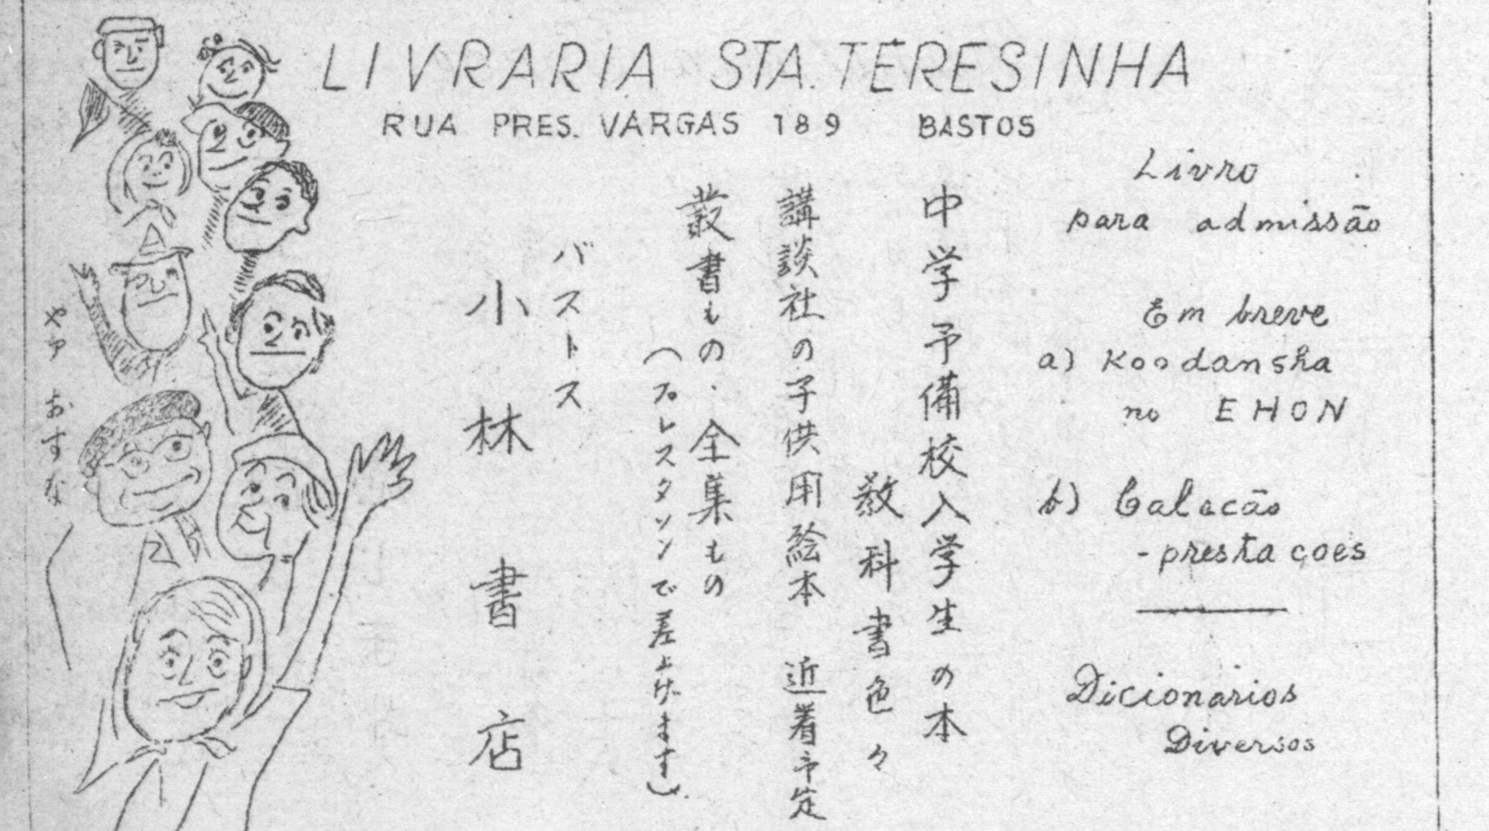 LIVRARIA STA. TERESINHA
RUA PRES. VARGAS 189 BASTOS
Livro
para admissão
Em breve
a) Koodansha
no EHON
b) Calecão
- presta coes
Dicionarios
Diversos
中学予備校入学生の本
教科書色々
講談社の子供用絵本 近着予定
叢書もの・全集もの
(プレスタソンで差上げます)
バストス
小林書店
やァ おすな